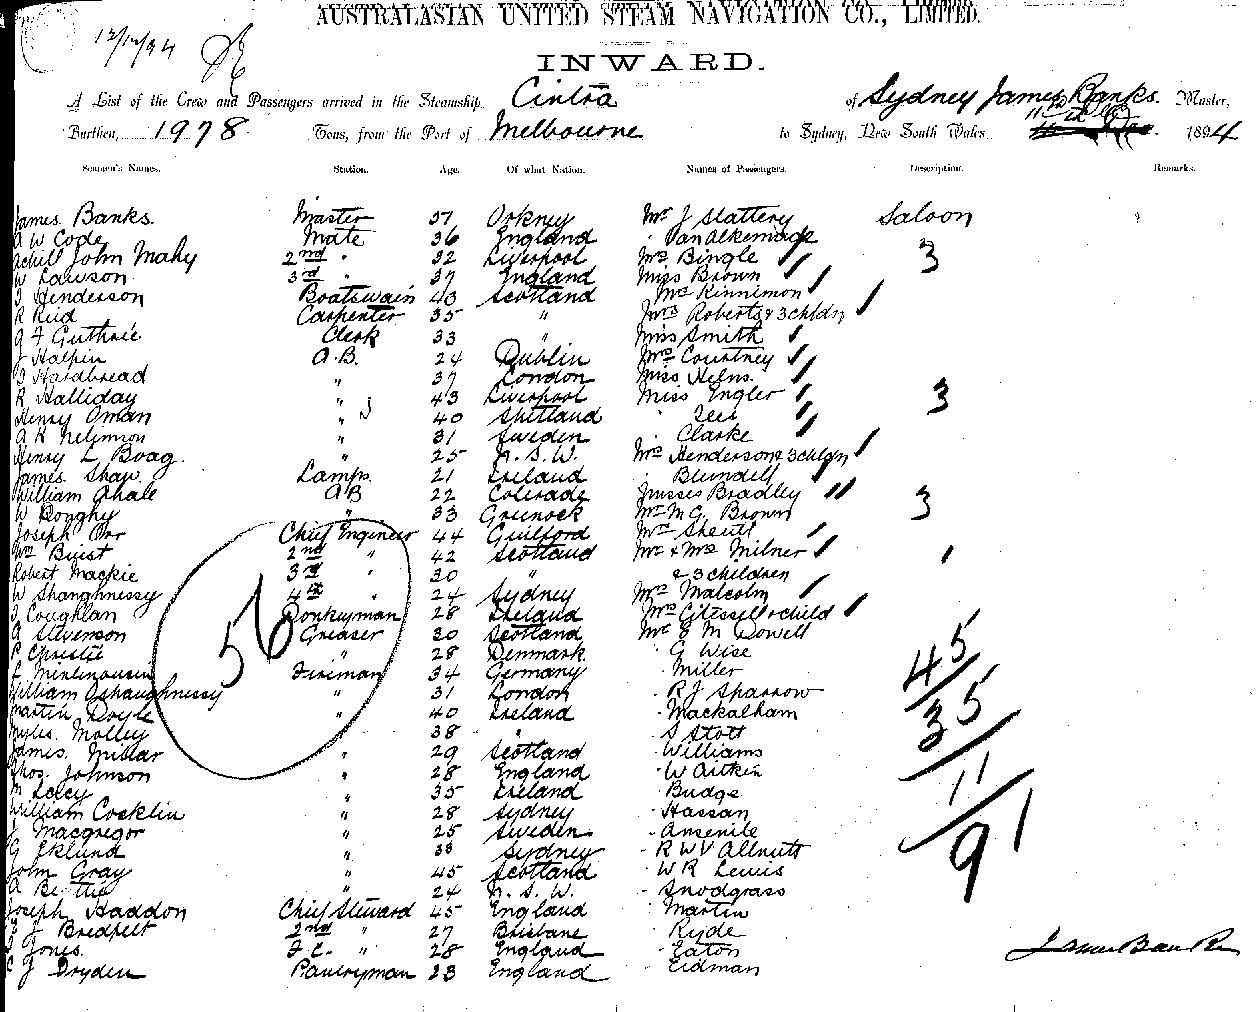 AUSTRALASIAN UNITED STEAM NAVIGATION CO., LIMITED.
12/12/94
INWARD.
A List of the Crew and Passengers arrived in the Steamship Cintra of Sydney James Banks. Master,
Burthen, 1978 Tons, from the Port of Melbourne to Sydney, New South Wales 11th Dec. 1894
Seamen's Names. Station. Age. Of what Nation. Names of Passengers. Description. Remarks.
James Banks. Master 37 Orkney Mr J Slattery Saloon
A W Code Mate 36 England " Van Alkemade
Achill John Mahy 2nd " 32 Liverpool Mrs Bingle 3
W Lawson 3rd " 37 England Miss Brown
Henderson Boatswain 43 Scotland Mrs Kinnimon
R Reid Carpenter 35 " Mrs Roberts & 3 chldn
A F Guthrie Clerk 33 " Miss Smith
J Halpin A.B. 24 Dublin Mrs Courtney
Hardbread " 37 London Miss Helns.
R Halliday " 43 Liverpool Miss Engler 3
Henry Oman " 40 Shetland " Lees
" 31 Sweden " Clarke
Henry L Boag. " 25 N.S.W. Mrs Henderson & 3 chldn
James Shaw. Lamps. 21 Ireland " Blundell
William Qhale AB 22 Colerade Misses Bradley 3
W Doughy " 33 Greenock Mr M G. Brown
Joseph Orr Chief Engineer 44 Guilford
Wm Buist 2nd " 42 Scotland Mr & Mrs Milner 1
Robert Mackie 3rd " 30 " & 3 children
W Shanghnessy 4th " 24 Sydney Mrs Malcolm
Coughlan Donkeyman 28 Ireland & child
A Stevenson Greaser 30 Scotland Mr E M Dowell
P Christie " 28 Denmark. " G Wise
Fireman 34 Germany " Miller
William Oshaughnessy " 31 London " R J Sparrow
Martin Doyle " 40 Ireland " Mackalham
Myles Molley 38 " " S Stott
James. Millar " 29 Scotland " Williams
Thos. Johnson " 28 England " W Aitkin
" 35 Ireland " Budge
William Cocklin " 28 Sydney " Hassan
Macgregor " 25 Sweden " Ansenile
G Eklund " 38 Sydney " R W V Allnutt
John Gray " 45 Scotland " W R Lewis
A Beattie " 24 N.S.W. " Snodgrass
Joseph Haddon Chief Steward 45 England " Martin
J Bredfelt 2nd " 27 Brisbane " Ryde
Jones. F C. " 28 England " Eaton
J Dryden Pantryman 23 England " Eidman
56
45
35
11
91
James Banks